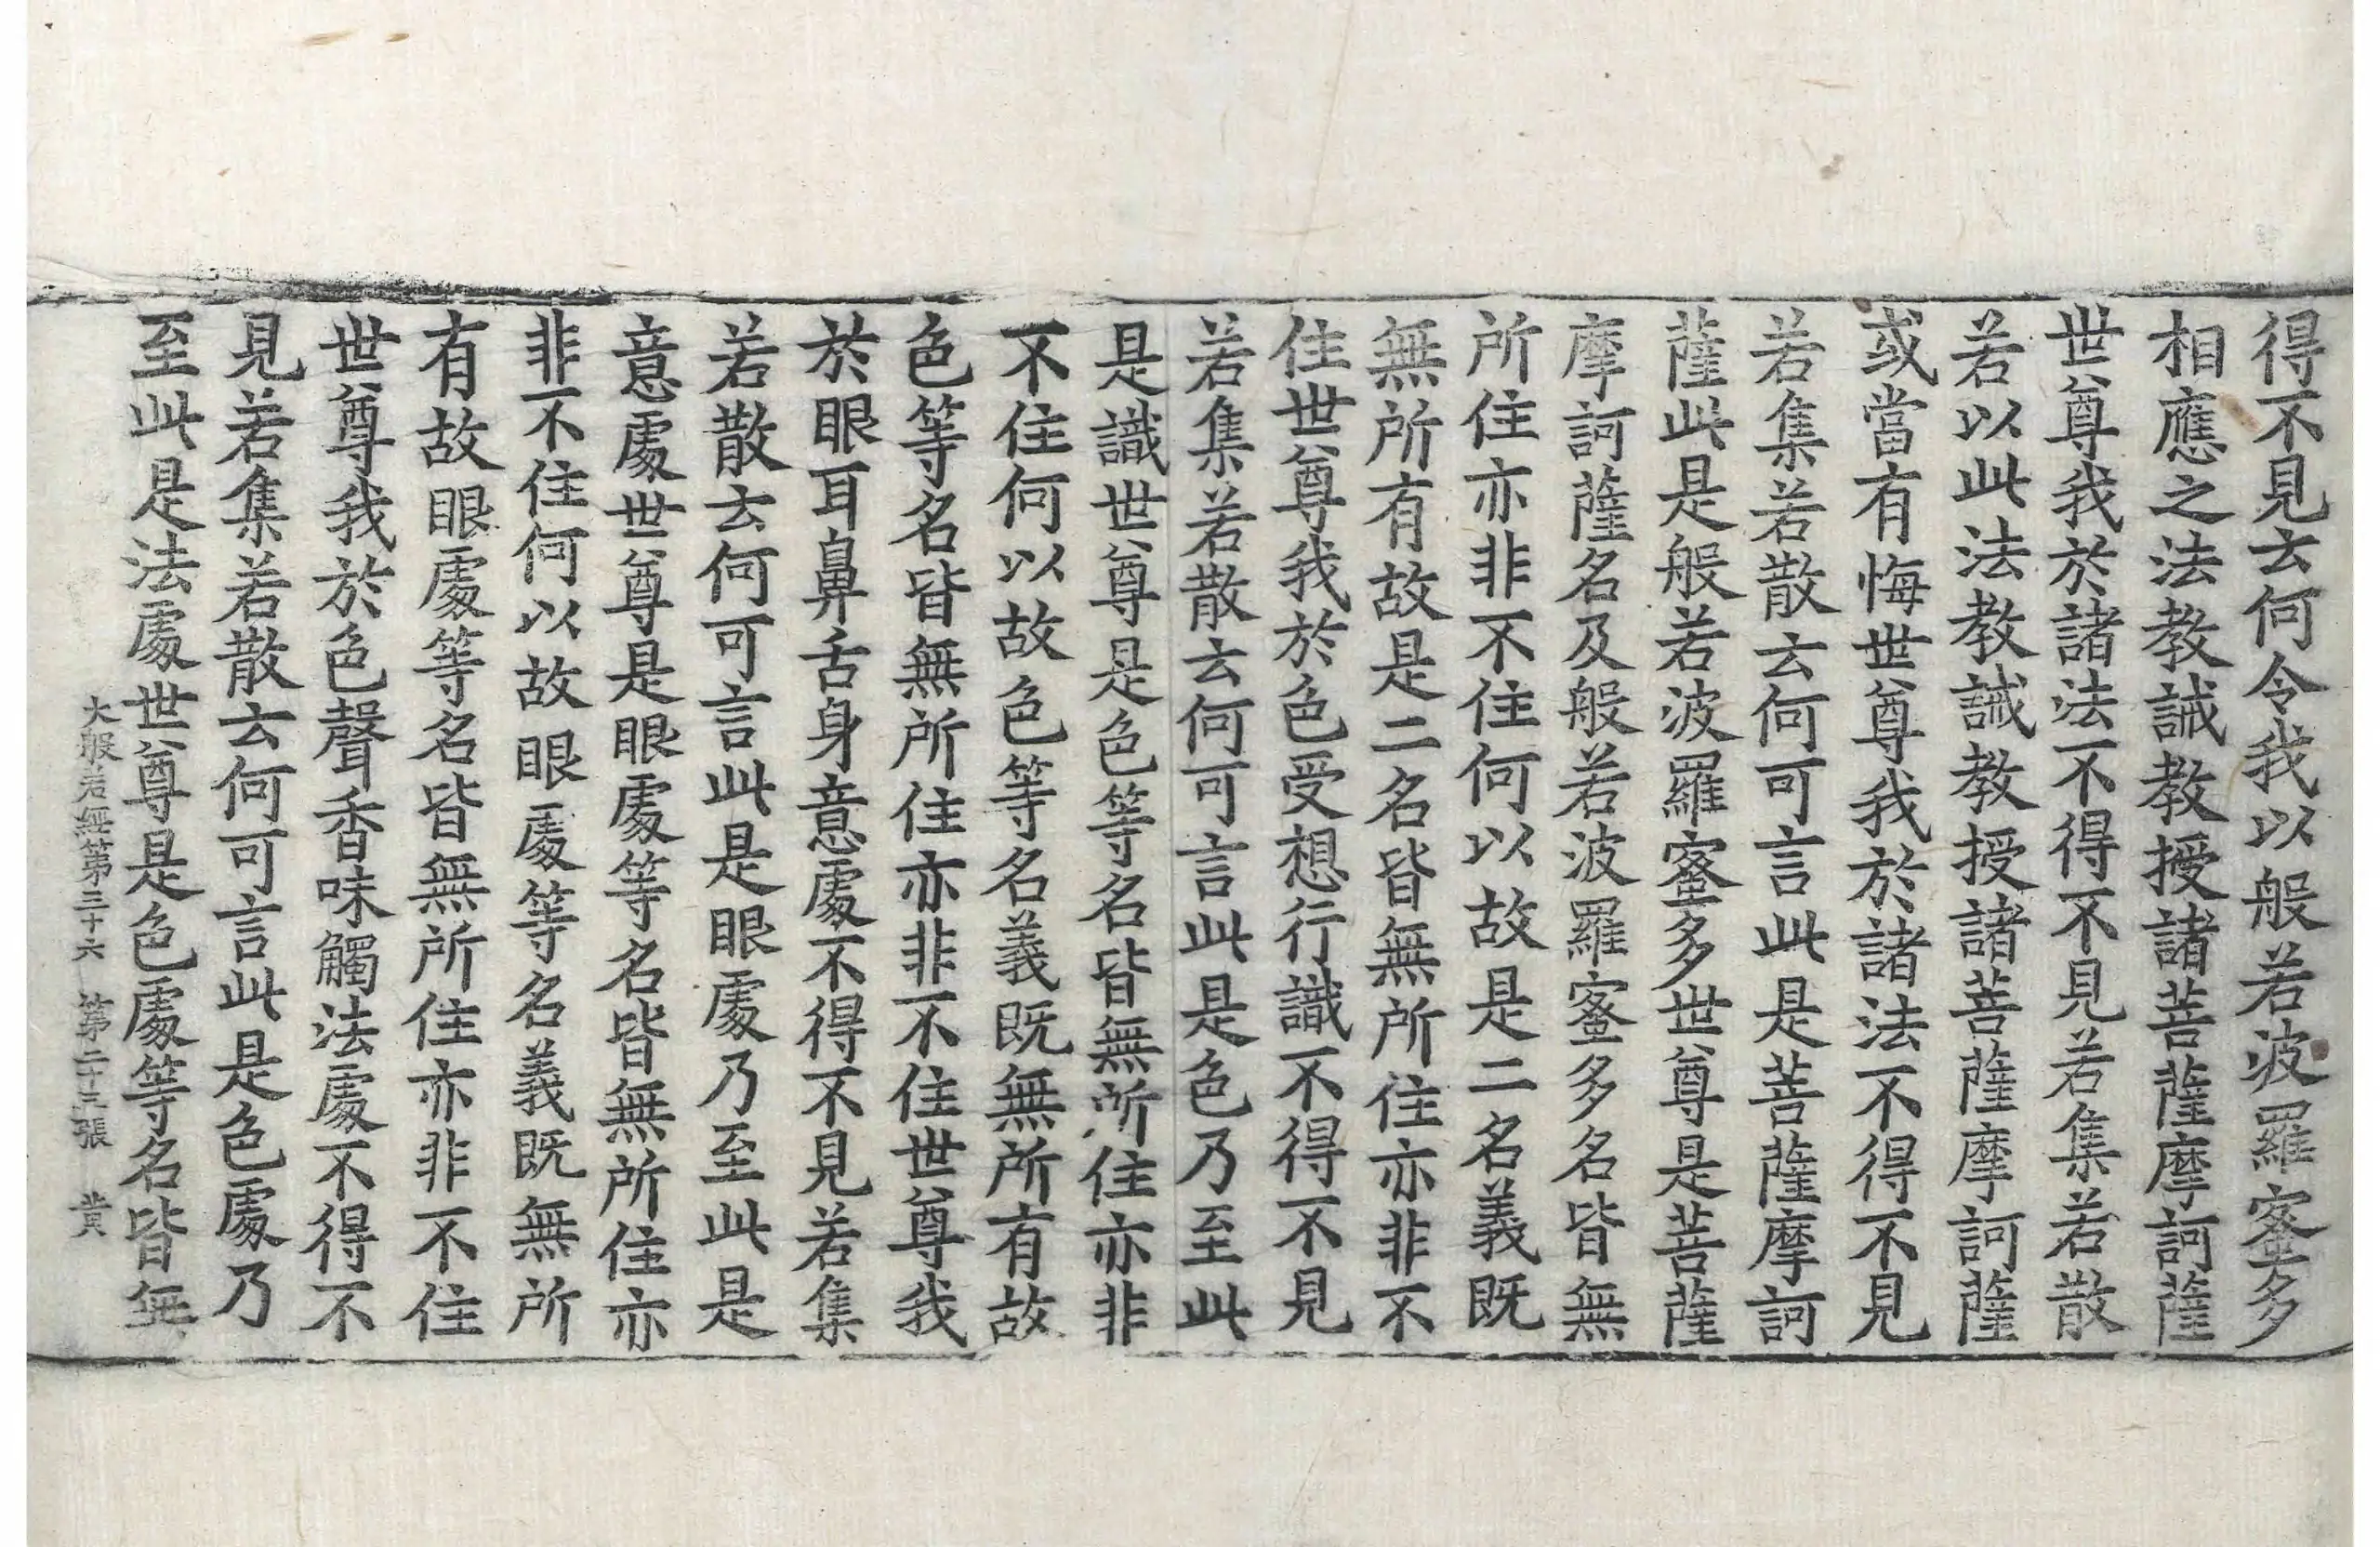 得不見云何令我以般若波羅蜜多
相應之法教誡教授諸菩薩摩訶薩
世尊我於諸法不得不見若集若散
若以此法教誡教授諸菩薩摩訶薩
或當有悔世尊我於諸法不得不見
若集若散云何可言此是菩薩摩訶
薩此是般若波羅蜜多世尊是菩薩
摩訶薩名及般若波羅蜜多名皆無
所住亦非不住何以故是二名義既
無所有故是二名皆無所住亦非不
住世尊我於色受想行識不得不見
若集若散云何可言此是色乃至此
是識世尊是色等名皆無所住亦非
不住何以故色等名義既無所有故
色等名皆無所住亦非不住世尊我
於眼耳鼻舌身意處不得不見若集
若散云何可言此是眼處乃至此是
意處世尊是眼處等名皆無所住亦
非不住何以故眼處等名義既無所
有故眼處等名皆無所住亦非不住
世尊我於色聲香味觸法處不得不
見若集若散云何可言此是色處乃
至此是法處世尊是色處等名皆無
大般若經第三十六 第二十三張 黃